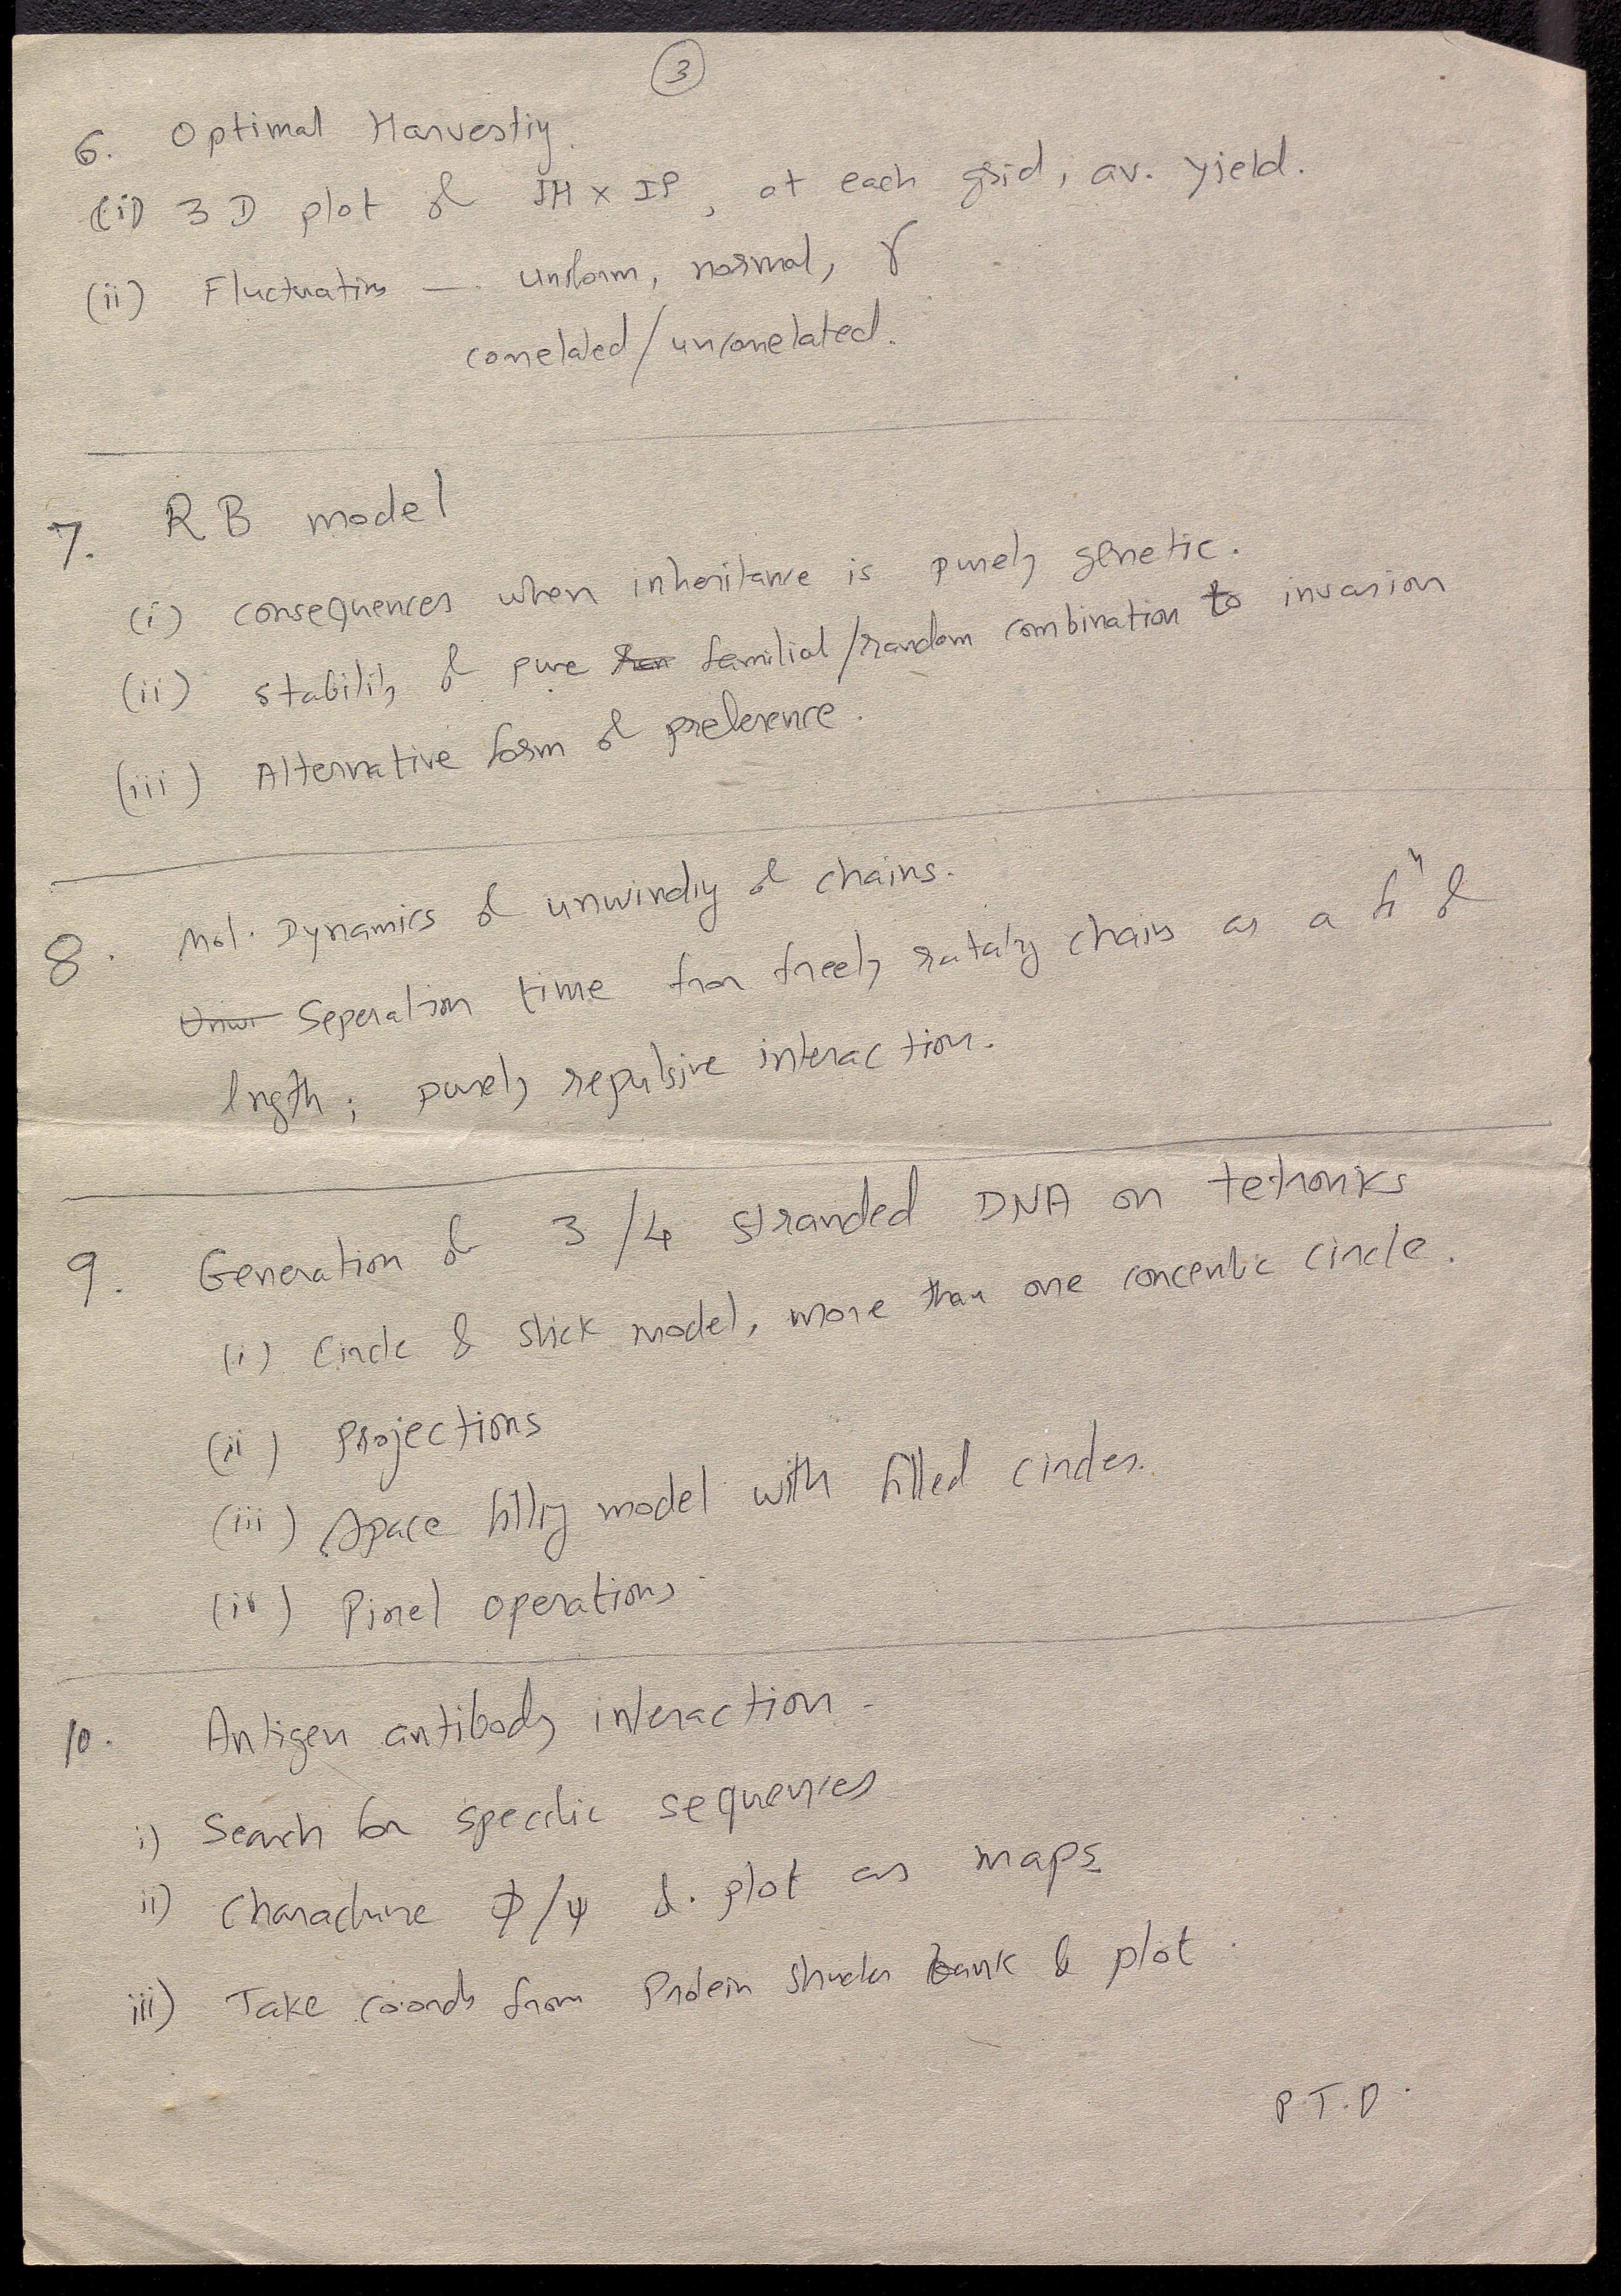 3
6. Optimal Harvesting.
(i) 3D plot of IH x IP, at each grid, av. yield.
(ii) Fluctuations — uniform, normal, γ
correlated/uncorrelated.
7. RB model
(i) consequences when inheritance is purely genetic.
(ii) stability of pure familial/random combination to invasion
(iii) Alternative form of preference.
8. Mol. Dynamics of unwinding of chains.
Unwi Seperation time for freely rotating chains as a fn of
length; purely repulsive interaction.
9. Generation of 3/4 stranded DNA on tetronix
(i) Circle & stick model, more than one concentric circle.
(ii) Projections
(iii) Space filling model with filled circles.
(iv) Pixel operations.
10. Antigen antibody interaction.
i) Search for specific sequences
ii) Characterize Φ/Ψ & plot as maps
iii) Take coords from Protein structer bank & plot.
P.T.O.